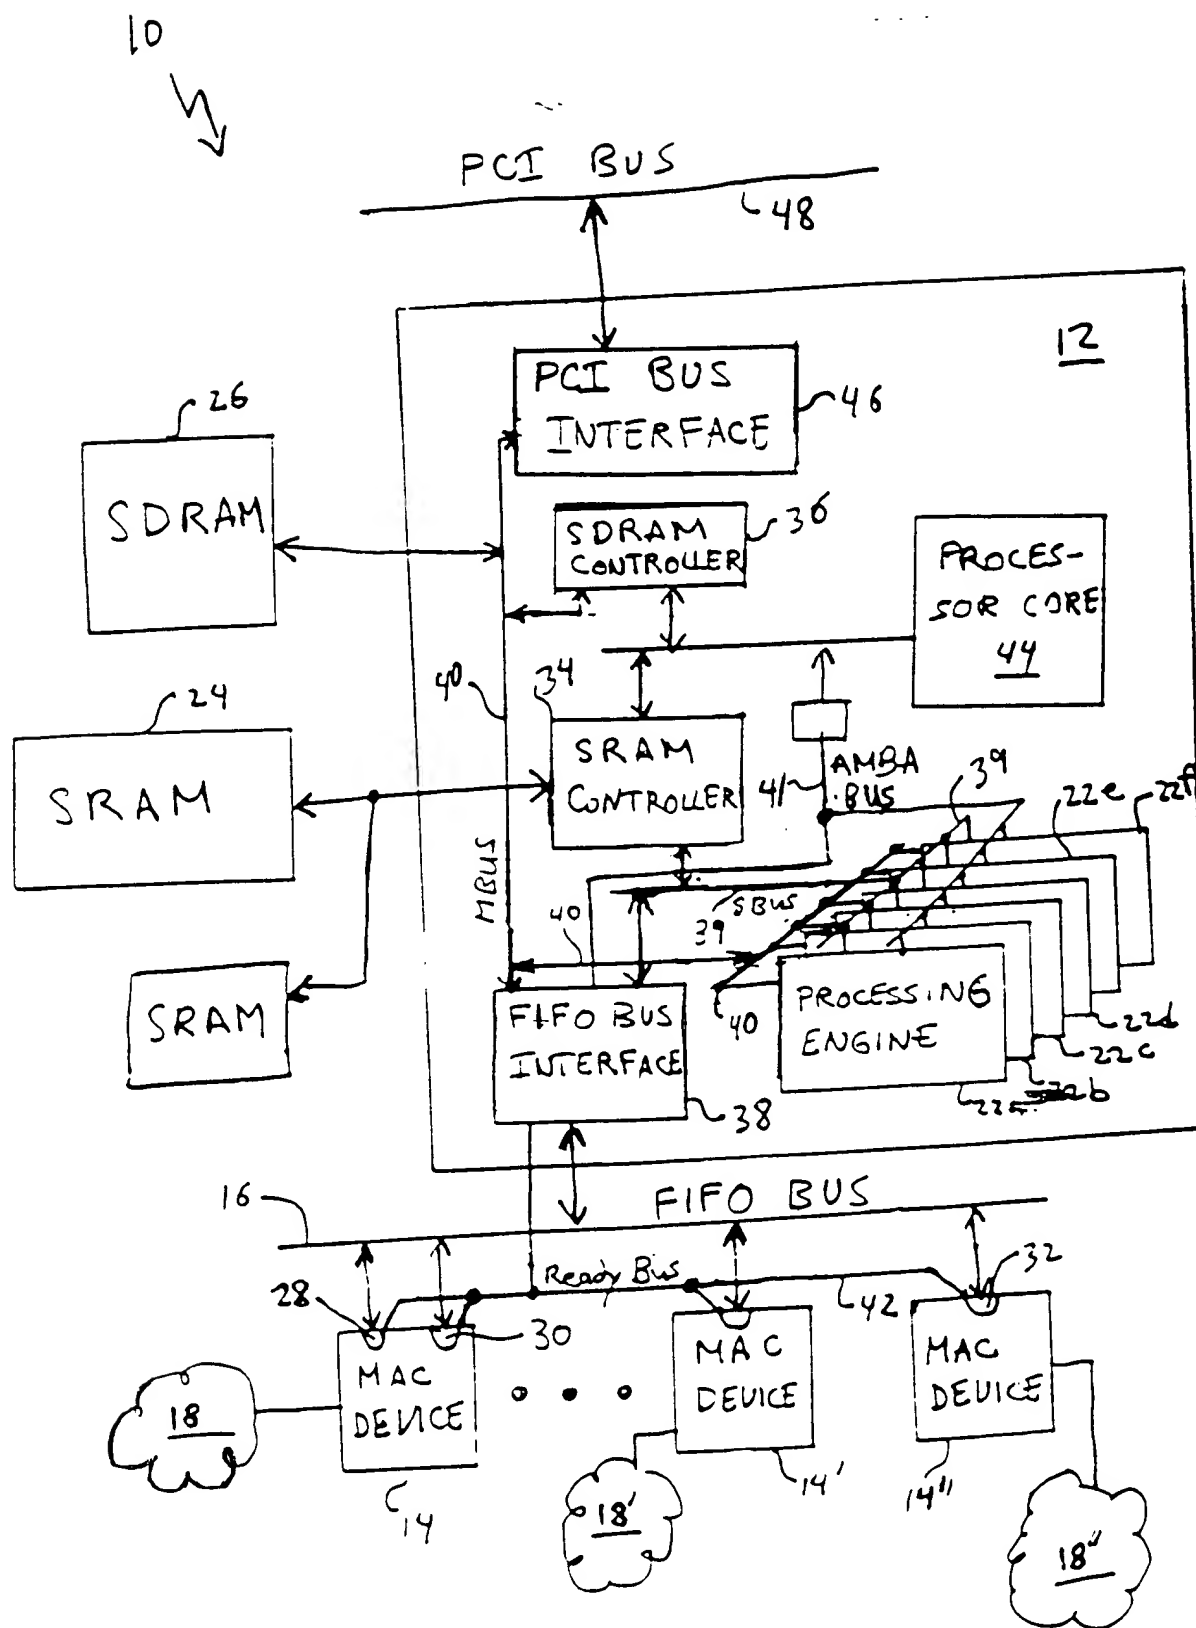 10
PCI BUS
48
12
PCI BUS
INTERFACE
46
26
SDRAM
SDRAM
CONTROLLER
36
PROCES-
SOR CORE
44
40
34
24
SRAM
SRAM
CONTROLLER
41
AMBA
BUS
39
22e
22f
MBUS
40
39
SBUS
SRAM
FIFO BUS
INTERFACE
38
40
PROCESSING
ENGINE
22d
22c
22b
22a
16
FIFO BUS
Ready Bus
28
30
42
32
MAC
DEVICE
MAC
DEVICE
MAC
DEVICE
18
14
18'
14'
14"
18"